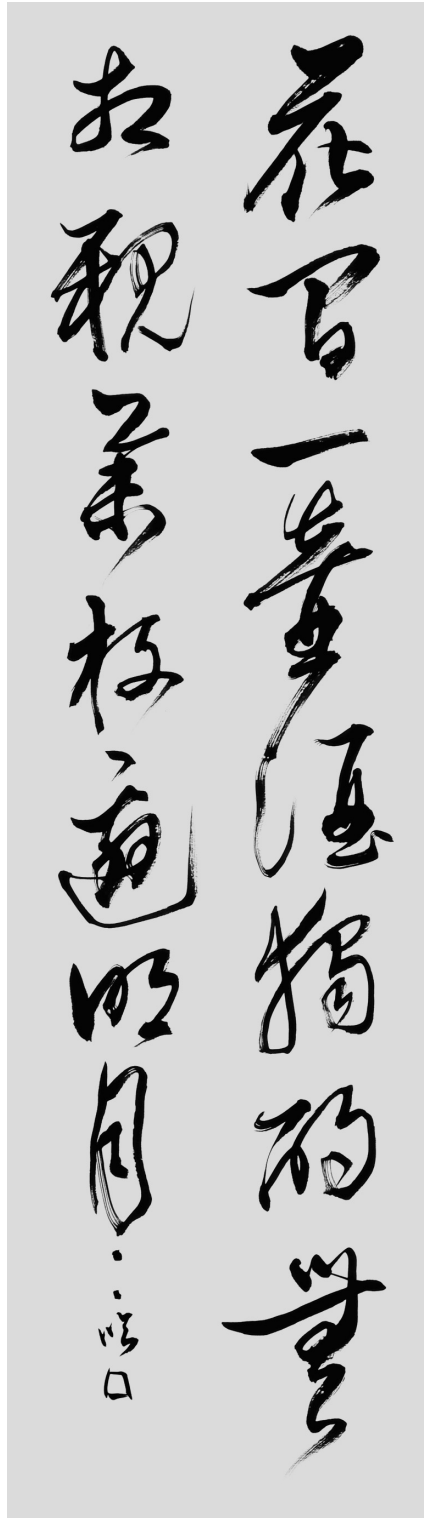 花間一壺酒獨酌無
相親舉杯邀明月